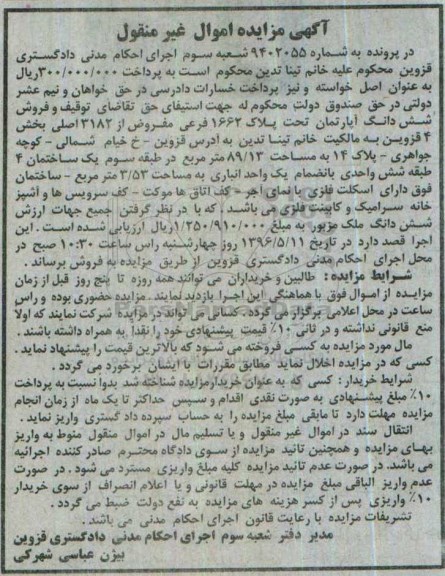 آگهی مزایده اموال غیر منقول
در پرونده به شماره ۹۴۰۲۰۵۵ شعبه سوم اجرای احکام مدنی دادگستری
قزوین محکوم علیه خانم تینا تدین محکوم است به پرداخت ۳۰۰/۰۰۰/۰۰۰ ریال
به عنوان اصل خواسته و نیز پرداخت خسارات دادرسی در حق خواهان و نیم عشر
دولتی در حق صندوق دولت محکوم له جهت استیفای حق تقاضای توقیف و فروش
شش دانگ آپارتمان تحت پلاک ۱۶۶۲ فرعی مفروض از ۳۱۸۲ اصلی بخش
۴ قزوین به مالکیت خانم تینا تدین به ادرس قزوین - خ خیام شمالی - کوچه
جواهری - پلاک ۱۴ به مساحت ۸۹/۱۳ متر مربع در طبقه سوم یک ساختمان ۴
طبقه شش واحدی بانضمام یک واحد انباری به مساحت ۳/۵۳ متر مربع - ساختمان
فوق دارای اسکلت فلزی با نمای آجر - کف اتاق ها موکت - کف سرویس ها و آشپز
خانه سرامیک و کابینت فلزی می باشد . که با در نظر گرفتن جمیع جهات ارزش
شش دانگ ملک مزبور به مبلغ ۱/۲۵۰/۹۱۰/۰۰۰ ریال ارزیابی شده است . این
اجرا قصد دارد در تاریخ ۱۳۹۶/۵/۱۱ روز چهارشنبه راس ساعت ۱۰:۳۰ صبح در
محل اجرای احکام مدنی دادگستری قزوین از طریق مزایده به فروش برساند .
شرایط مزایده : طالبین و خریداران می توانند همه روزه تا پنج روز قبل از زمان
مزایده از اموال فوق با هماهنگی این اجرا بازدید نمایند . مزایده حضوری بوده و راس
ساعت در محل اعلامی برگزار می گردد . کسانی می توانند در مزایده شرکت نمایند که اولا
منع قانونی نداشته و در ثانی ۱۰٪ قیمت پیشنهادی خود را نقدا به همراه داشته باشند .
مال مورد مزایده به کسی فروخته می شود که بالاترین قیمت را پیشنهاد نماید .
کسی که در مزایده اخلال نماید مطابق مقررات با ایشان برخورد می گردد .
شرایط خریدار : کسی که به عنوان خریدار مزایده شناخته شد بدوا نسبت به پرداخت
۱۰٪ مبلغ پیشنهادی به صورت نقدی اقدام و سپس حداکثر تا یک ماه از زمان انجام
مزایده مهلت دارد تا مابقی مبلغ مزایده را به حساب سپرده دادگستری واریز نماید .
انتقال سند در اموال غیر منقول و یا تسلیم مال در اموال منقول منوط به واریز
بهای مزایده و همچنین تائید مزایده از سوی دادگاه محترم صادر کننده اجرائیه
می باشد. در صورت عدم تائید مزایده کلیه مبلغ واریزی مسترد می شود . در صورت
عدم واریز الباقی مبلغ مزایده در مهلت قانونی و یا اعلام انصراف از سوی خریدار
۱۰٪ واریزی پس از کسر هزینه های مزایده به نفع دولت ضبط می گردد .
تشریفات مزایده با رعایت قانون اجرای احکام مدنی می باشند .
مدیر دفتر شعبه سوم اجرای احکام مدنی دادگستری قزوین
بیژن عباسی شهرکی